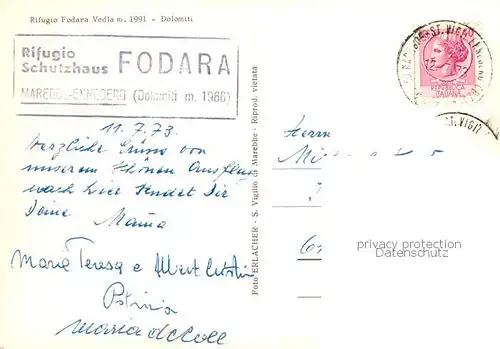 Rifugio Fodara Vedla m. 1991 - Dolomiti
Rifugio
Schutzhaus FODARA
MAREBBE-ENNEBERG (Dolomiti m. 1966)
11.7.73
Herzliche Grüsse von
unserem schönen Ausflug
nach hier sendet Dir
Deine Mama
Maria Teresa e Albert
Maria
Foto ERLACHER - S. Vigilio di Marebbe - Riprod. vietata
ST. VIGIL
REPVBBLICA
ITALIANA
ST. VIGIL
Herrn
privacy protection
Datenschutz